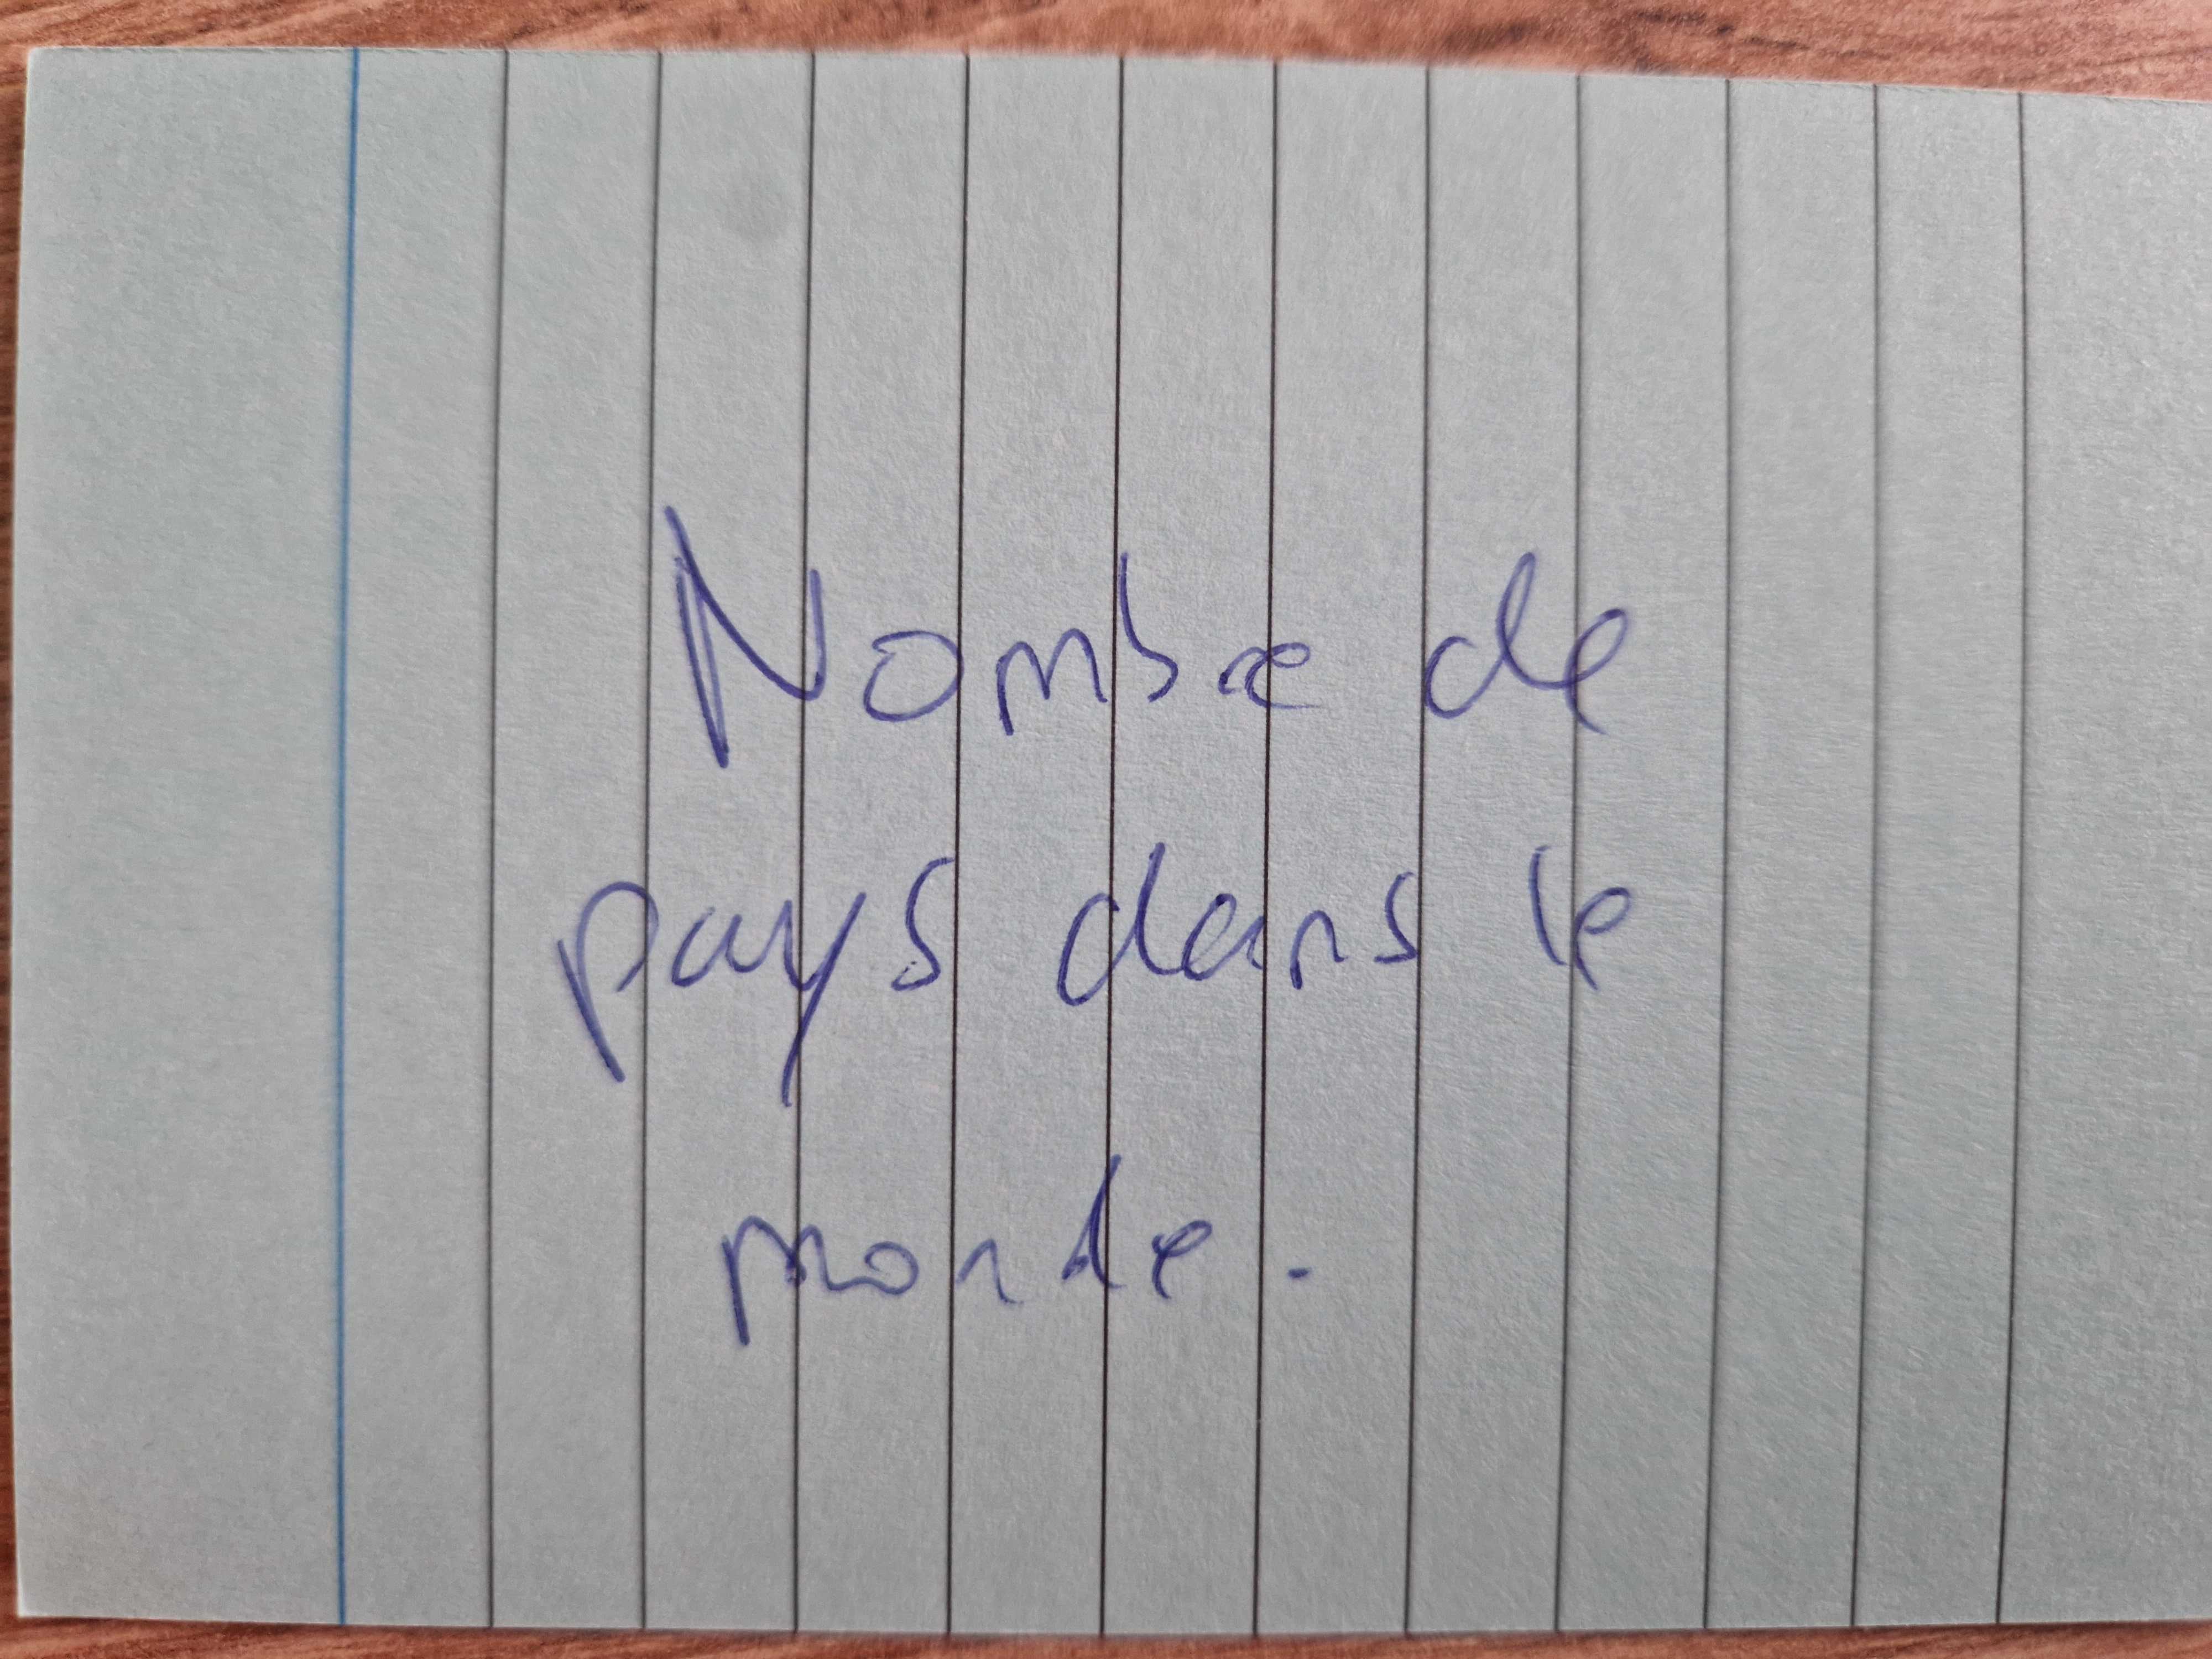 Nombre de
pays dans le
monde.